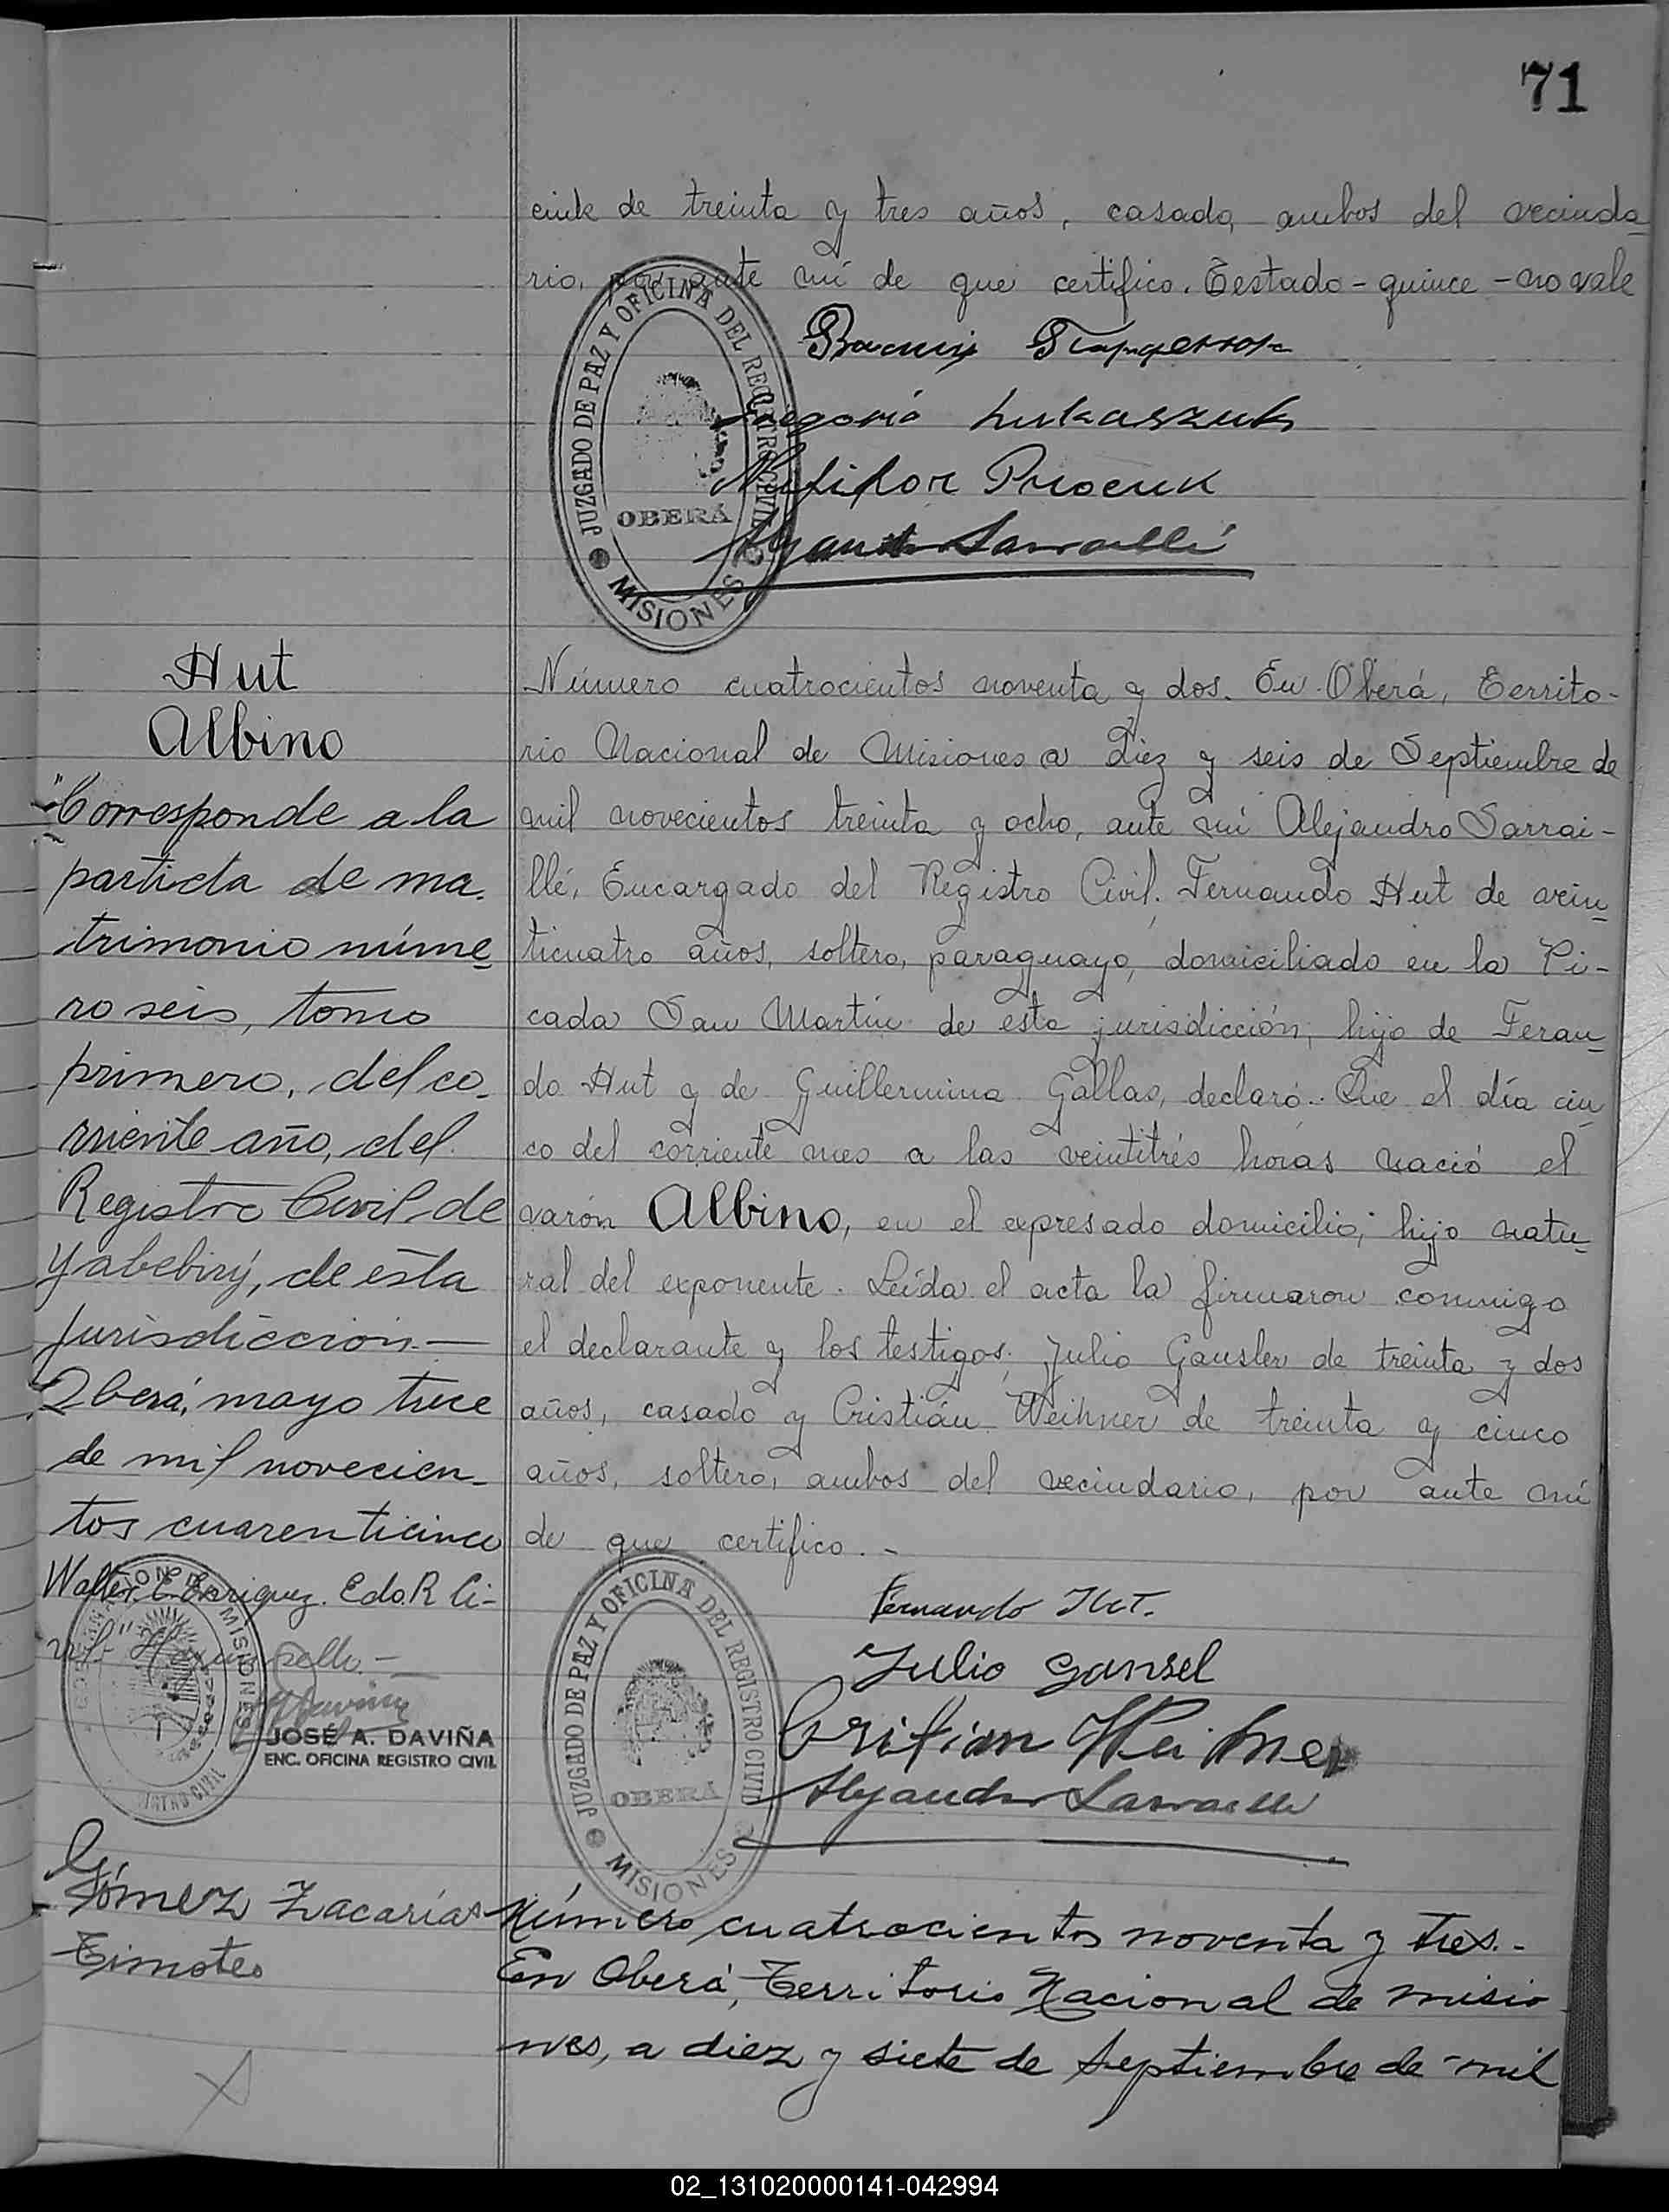 71
de treinta y tres años, casado, ambos del vecinda
rio, por ante mí de que certifico. Testado - quince - no vale
Gregorio Lukaszuk
Procuk
Alejandro Sarraillé
JUZGADO DE PAZ Y OFICINA DEL REGISTRO CIVIL
OBERÁ
MISIONES
Hut
Albino
"Corresponde a la
partida de ma-
trimonio núme
ro seis, tomo
primero, del co-
rriente año, del
Registro Civil de
Yabebiry, de esta
Jurisdicción.—
Oberá, mayo trece
de mil novecien-
tos cuarenticinco
Walter E. Enriquez. Edo. R Ci-
vil"
JOSÉ A. DAVIÑA
ENC. OFICINA REGISTRO CIVIL
Número cuatrocientos noventa y dos. En Oberá, Territo-
rio Nacional de Misiones a diez y seis de Septiembre de
mil novecientos treinta y ocho, ante mí Alejandro Sarrai-
llé, Encargado del Registro Civil. Fernando Hut de vein
ticuatro años, soltero, paraguayo, domiciliado en la Pi-
cada San Martín de esta jurisdicción, hijo de Feran
do Hut y de Guillermina Gallas, declaró. Que el día cin
co del corriente mes a las veintitrés horas nació el
varón Albino, en el expresado domicilio; hijo natu
ral del exponente. Leída el acta la firmaron conmigo
el declarante y los testigos, Julio Gausler de treinta y dos
años, casado y Cristián Weihner de treinta y cinco
años, soltero, ambos del vecindario, por ante mí
de que certifico. -
Fernando Hut.
Julio Gansel
Cristian Weihner
Alejandro Sarraillé
JUZGADO DE PAZ Y OFICINA DEL REGISTRO CIVIL
OBERÁ
MISIONES
Gómez Zacarías
Timoteo
Número cuatrocientos noventa y tres.-
En Oberá, Territorio Nacional de Misio
nes, a diez y siete de Septiembre de mil
02_131020000141-042994